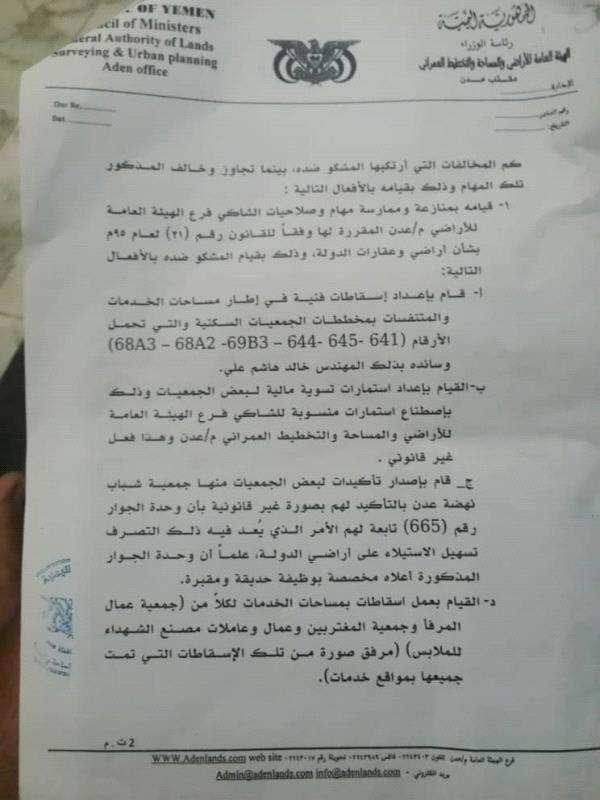 OF YEMEN
ncil of Ministers
neral Authority of Lands
Surveying & Urban planning
Aden office
الجمهورية اليمنية
رئاسة الوزراء
الهيئة العامة للأراضي والمساحة والتخطيط العمراني
مكتب عدن
الإدارة
Our Re.
Dat.
رقم الصادر
التاريخ:
كم المخالفات التي أرتكبها المشكو ضده، بينما تجاوز وخالف المذكور
تلك المهام وذلك بقيامه بالأفعال التالية :
١- قيامه بمنازعة وممارسة مهام وصلاحيات الشاكي فرع الهيئة العامة
للأراضي م/عدن المقررة لها وفقاً للقانون رقم (٢١) لعام ٩٥م
بشأن أراضي وعقارات الدولة، وذلك بقيام المشكو ضده بالأفعال
التالية:
أ- قام بإعداد إسقاطات فنية في إطار مساحات الخدمات
والمتنفسات بمخططات الجمعيات السكنية والتي تحمل
الأرقام (641 -645 -644 – 69B3- 68A2 – 68A3)
وسانده بذلك المهندس خالد هاشم علي.
ب-القيام بإعداد استمارات تسوية مالية لبعض الجمعيات وذلك
بإصطناع استمارات منسوبة للشاكي فرع الهيئة العامة
للأراضي والمساحة والتخطيط العمراني م/عدن وهذا فعل
غير قانوني .
ج_ قام بإصدار تأكيدات لبعض الجمعيات منها جمعية شباب
نهضة عدن بالتأكيد لهم بصورة غير قانونية بأن وحدة الجوار
رقم (665) تابعة لهم الأمر الذي يُعد فيه ذلك التصرف
تسهيل الاستيلاء على أراضي الدولة، علماً أن وحدة الجوار
المذكورة أعلاه مخصصة بوظيفة حديقة ومقبرة.
د- القيام بعمل اسقاطات بمساحات الخدمات لكلاً من (جمعية عمال
المرفأ وجمعية المغتربين وعمال وعاملات مصنع الشهداء
للملابس) (مرفق صورة من تلك الإسقاطات التي تمت
جميعها بمواقع خدمات).
2 ت . م
فرع الهيئة العامة م/عدن تلفون ٠٢٢٤٣٤٠٣ فاكس ٠٢٢٤٣٩٨٩ تحويلة رقم ٠٢٢٤٣٠١٧ WWW.Adenlands.com web site
بريد الكتروني - Admin@adenlands.com info@adenlands.com